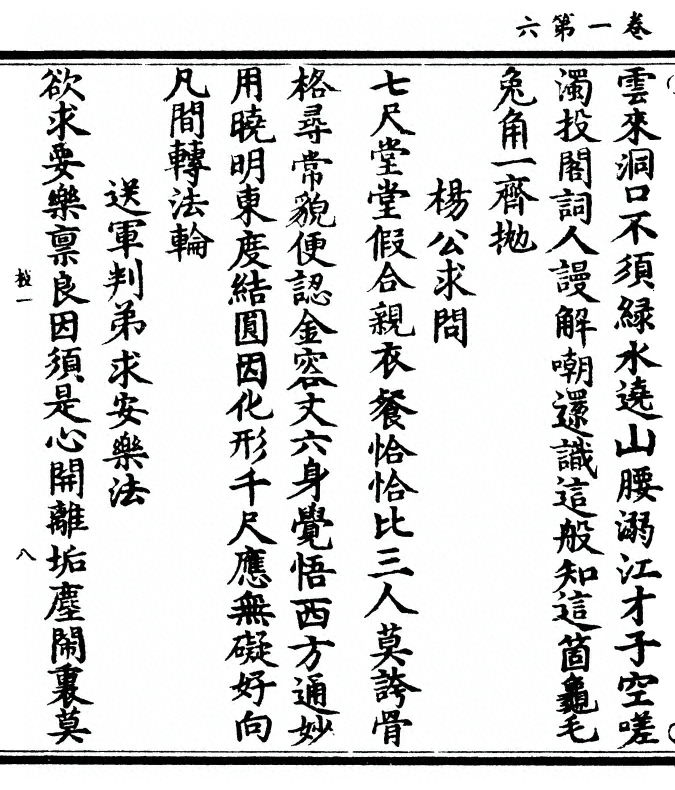 卷一第六
雲來洞口不須緑水遶山腰溺江才子空嗟
濁投閣詞人謾解嘲還識這般知這箇龜毛
兔角一齊拋
楊公求問
七尺堂堂假合親衣餐恰恰比三人莫誇骨
格尋常貌便認金容丈六身覺悟西方通妙
用曉明東度結圓因化形千尺應無礙好向
凡間轉法輪
送軍判弟求安樂法
欲求要樂禀良因須是心開離垢塵鬧裏莫
八